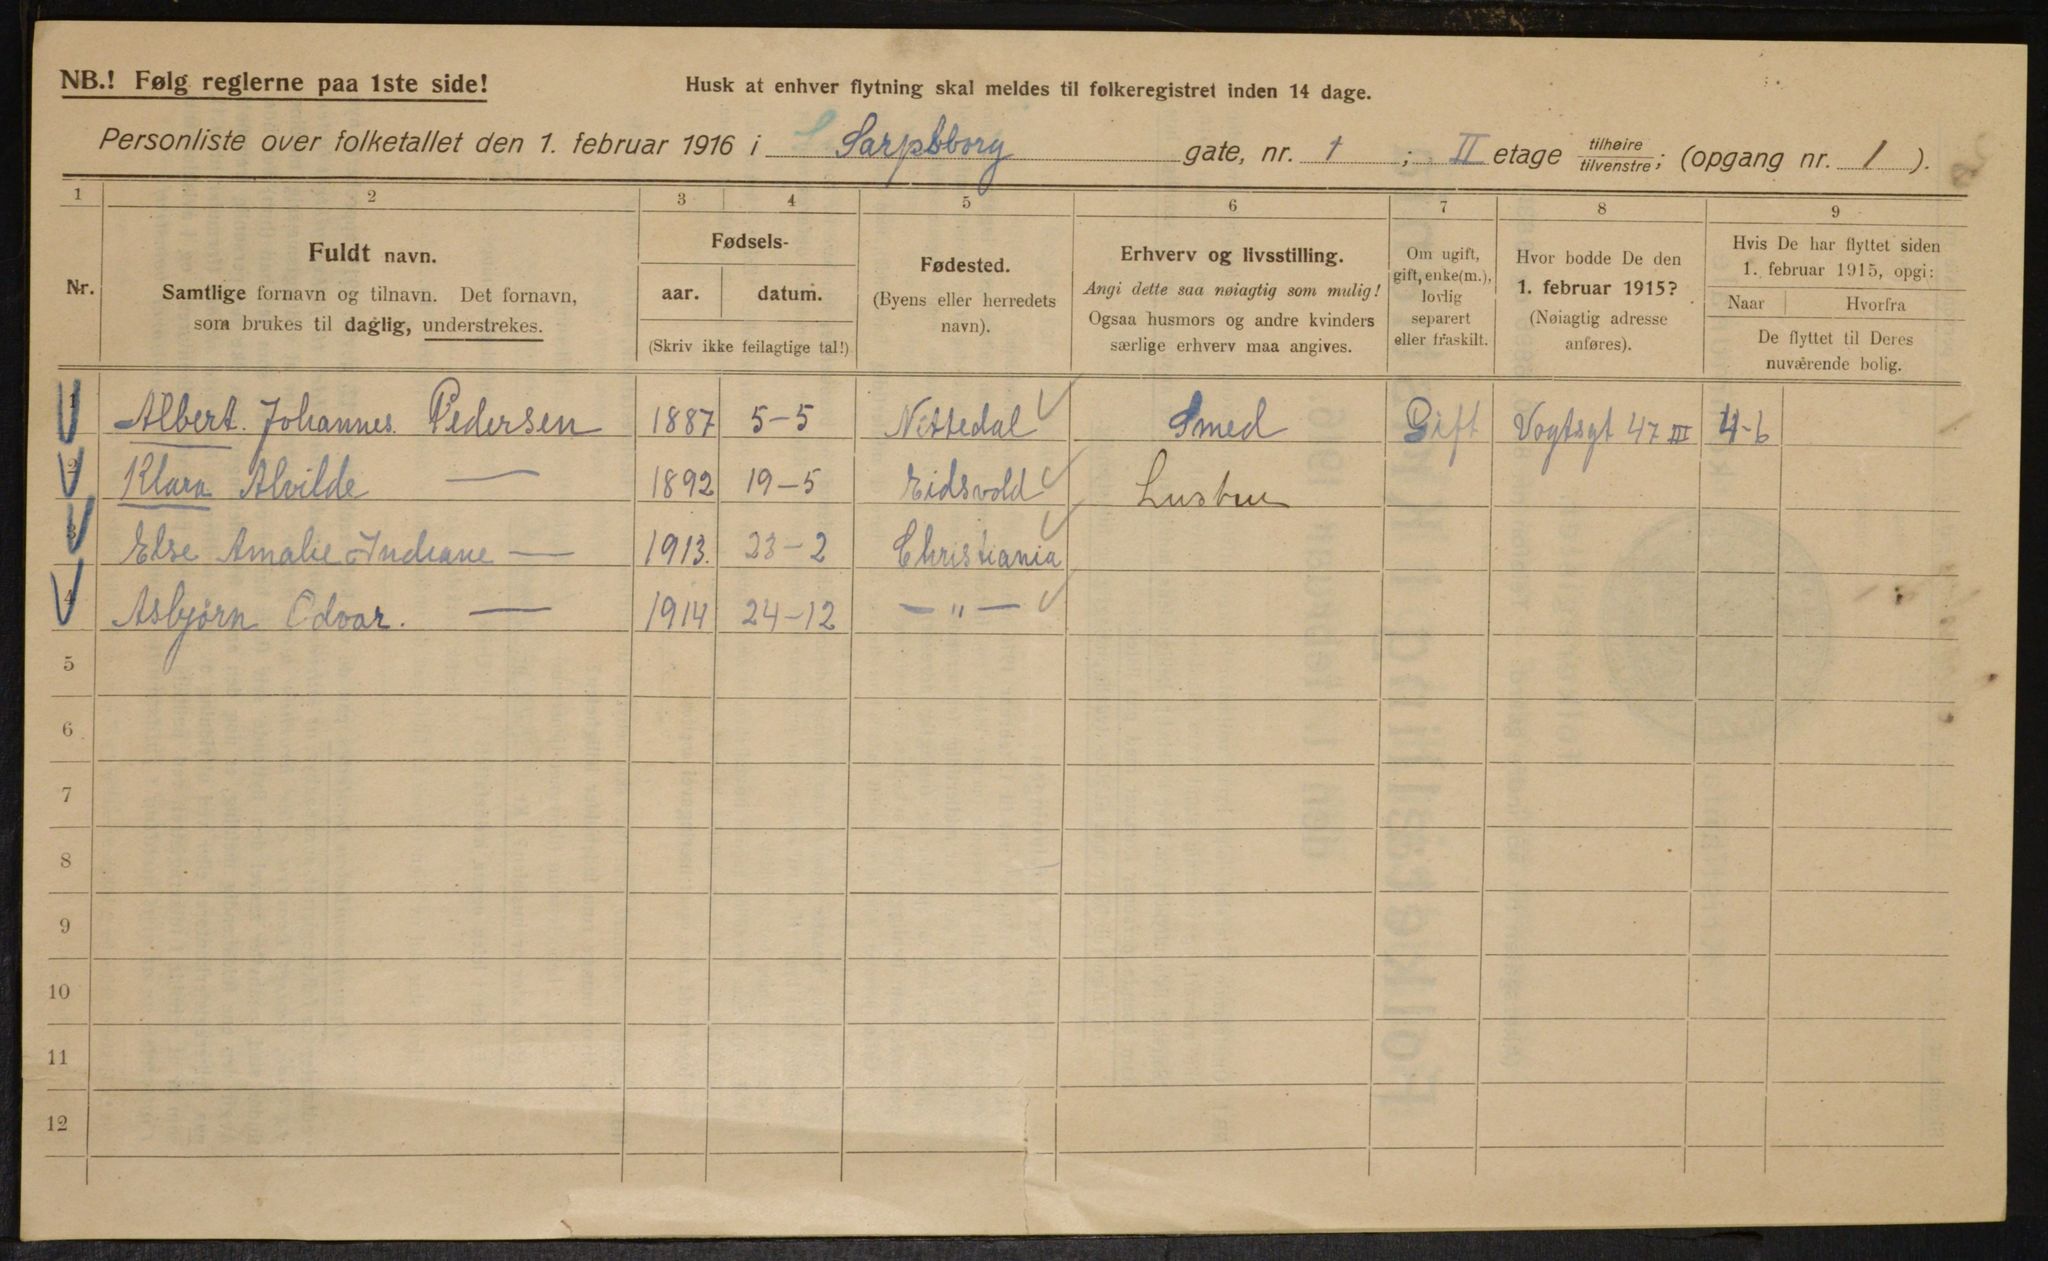 NB.! Følg reglerne paa 1ste side! Husk at enhver flytning skal meldes til folkeregistret inden 14 dage.
Personliste over folketallet den 1. februar 1916 i Sarpsborg gate, nr. 1; II etage tilhøire/tilvenstre; (opgang nr. 1).
1 2 3 4 5 6 7 8 9
Nr.
Fuldt navn.
Samtlige fornavn og tilnavn. Det fornavn,
som brukes til daglig, understrekes.
Fødsels-
aar. datum.
(Skriv ikke feilagtige tal!)
Fødested.
(Byens eller herredets
navn).
Erhverv og livsstilling.
Angi dette saa nøiagtig som mulig!
Ogsaa husmors og andre kvinders
særlige erhverv maa angives.
Om ugift,
gift, enke(m.),
lovlig
separert
eller fraskilt.
Hvor bodde De den
1. februar 1915?
(Nøiagtig adresse
anføres).
Hvis De har flyttet siden
1. februar 1915, opgi:
Naar Hvorfra
De flyttet til Deres
nuværende bolig.
1 Albert. Johannes. Pedersen 1887 5-5 Nittedal Smed Gift Vogtsgt 47 III 4-6
2 Klara Alvilde — 1892 19-5 Eidsvold
3 Else Amalie — 1913. 23-2 Christiania
4 Asbjørn Odvar. — 1914 24-12 — " —
5
6
7
8
9
10
11
12